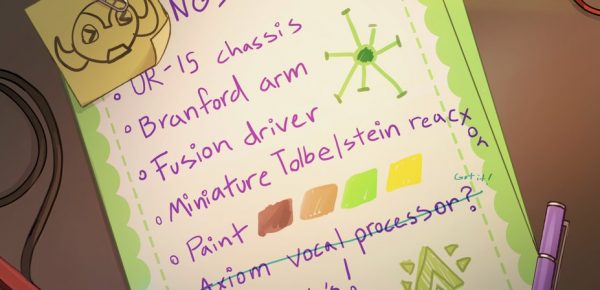 UR-15 chassis
Branford arm
Fusion driver
Miniature Tolbelstein reactor
Paint
Got it!
Axiom vocal processor?